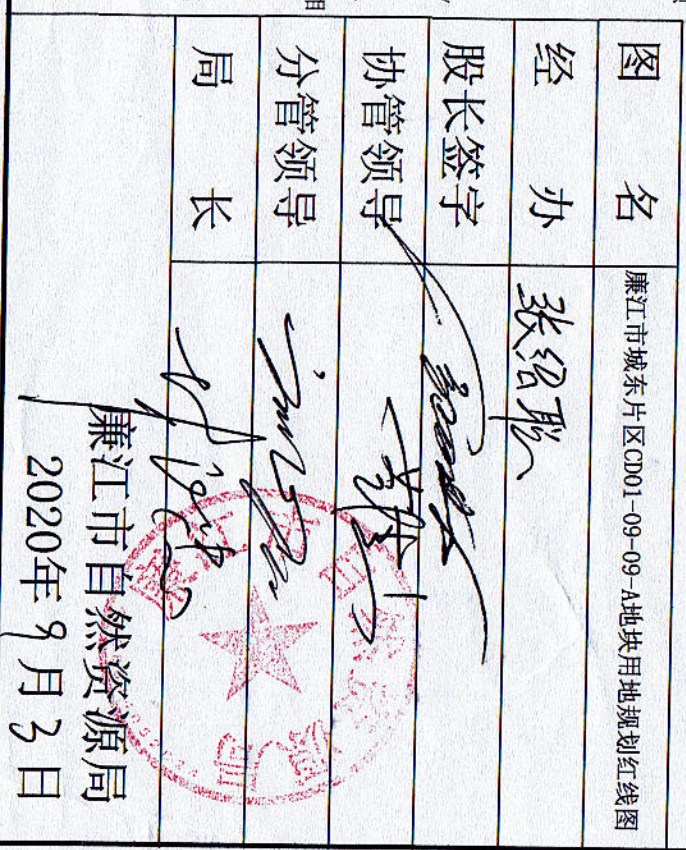 图名 廉江市城东片区CD01-09-09-A地块用地规划红线图
经办 张绍聪
股长签字
协管领导
分管领导
局长
廉江市自然资源局
2020年9月3日